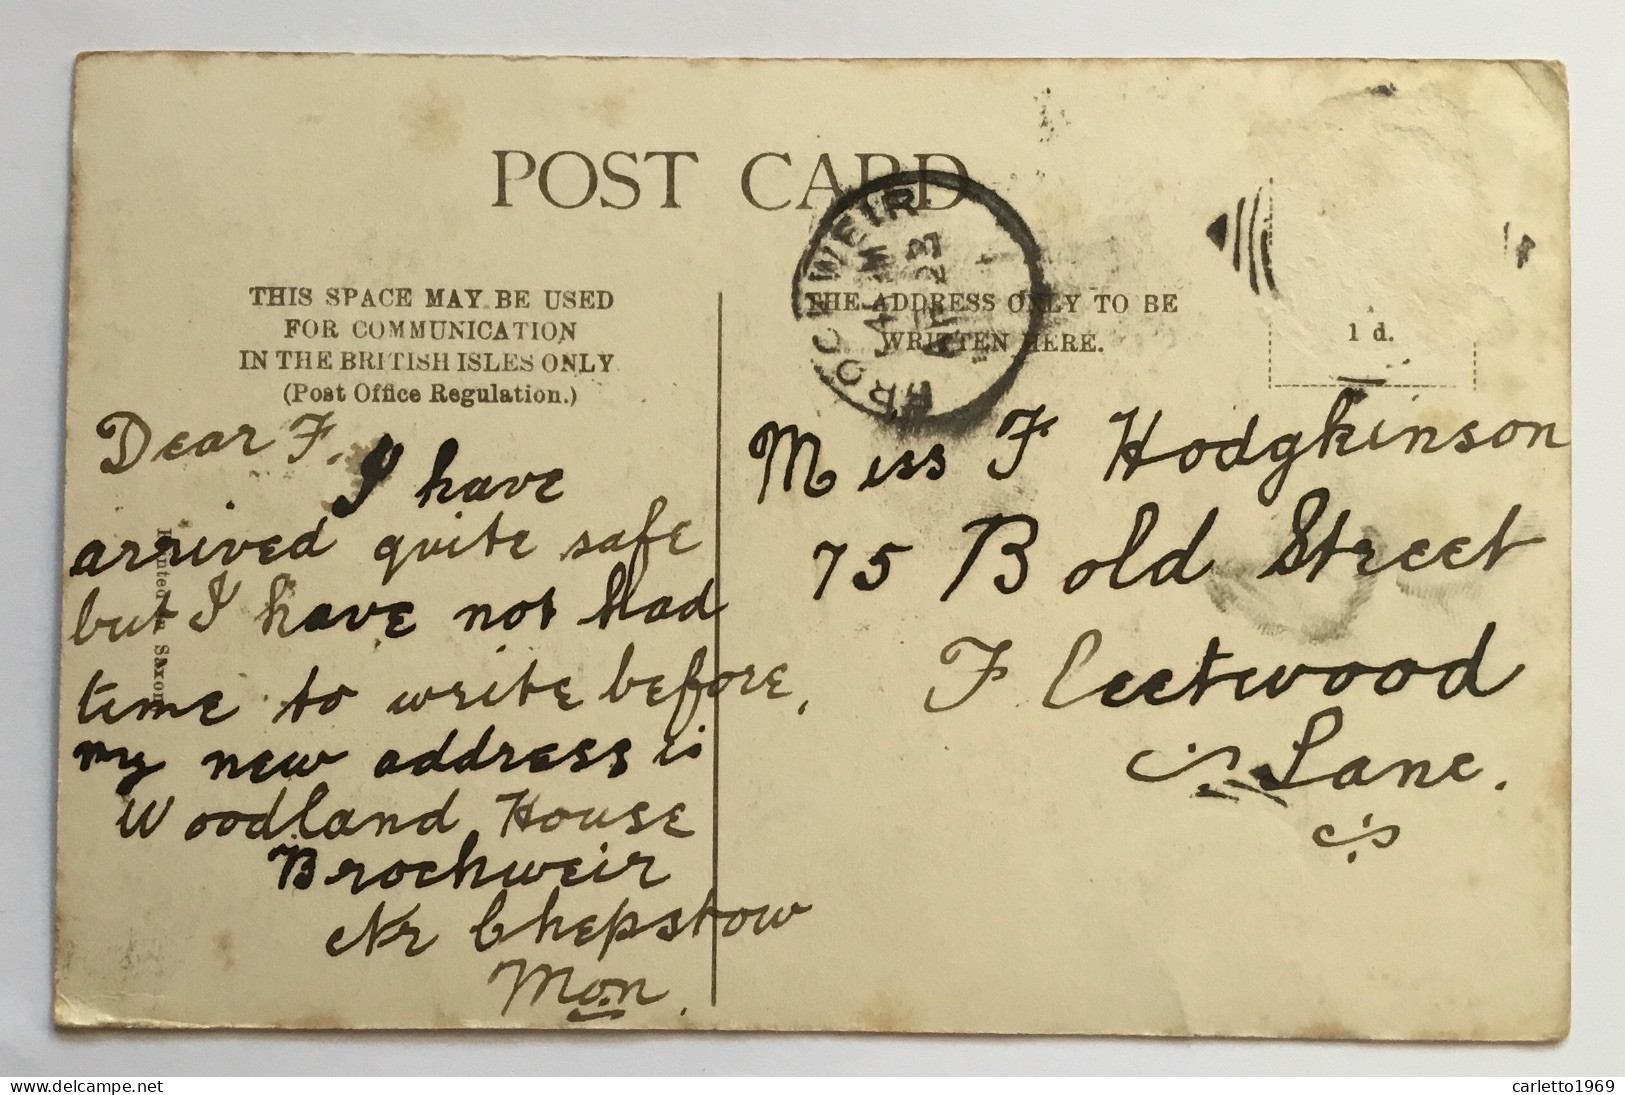 POST CARD
THIS SPACE MAY BE USED
FOR COMMUNICATION
IN THE BRITISH ISLES ONLY
(Post Office Regulation.)
Dear F.
I have
arrived quite safe
but I have not had
time to write before,
my new address is
Woodland House
Brockweir
Nr Chepstow
Mon.
Printed in Saxony
BROCKWEIR
THE ADDRESS ONLY TO BE
WRITTEN HERE.
1 d.
Miss F Hodgkinson
75 Bold Street
Fleetwood
Lane.
carletto1969